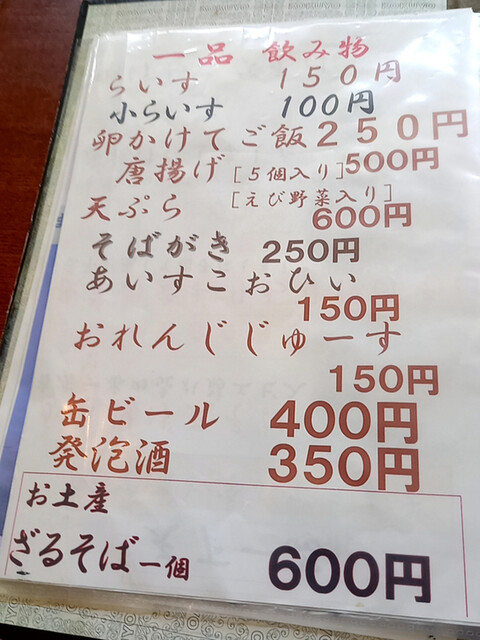 一品 飲み物
らいす 150円
小らいす 100円
卵かけてご飯 250円
唐揚げ[5個入り]500円
天ぷら[えび野菜入り]
600円
そばがき 250円
あいすこおひい
150円
おれんじじゅーす
150円
缶ビール 400円
発泡酒 350円
お土産
ざるそば一個 600円